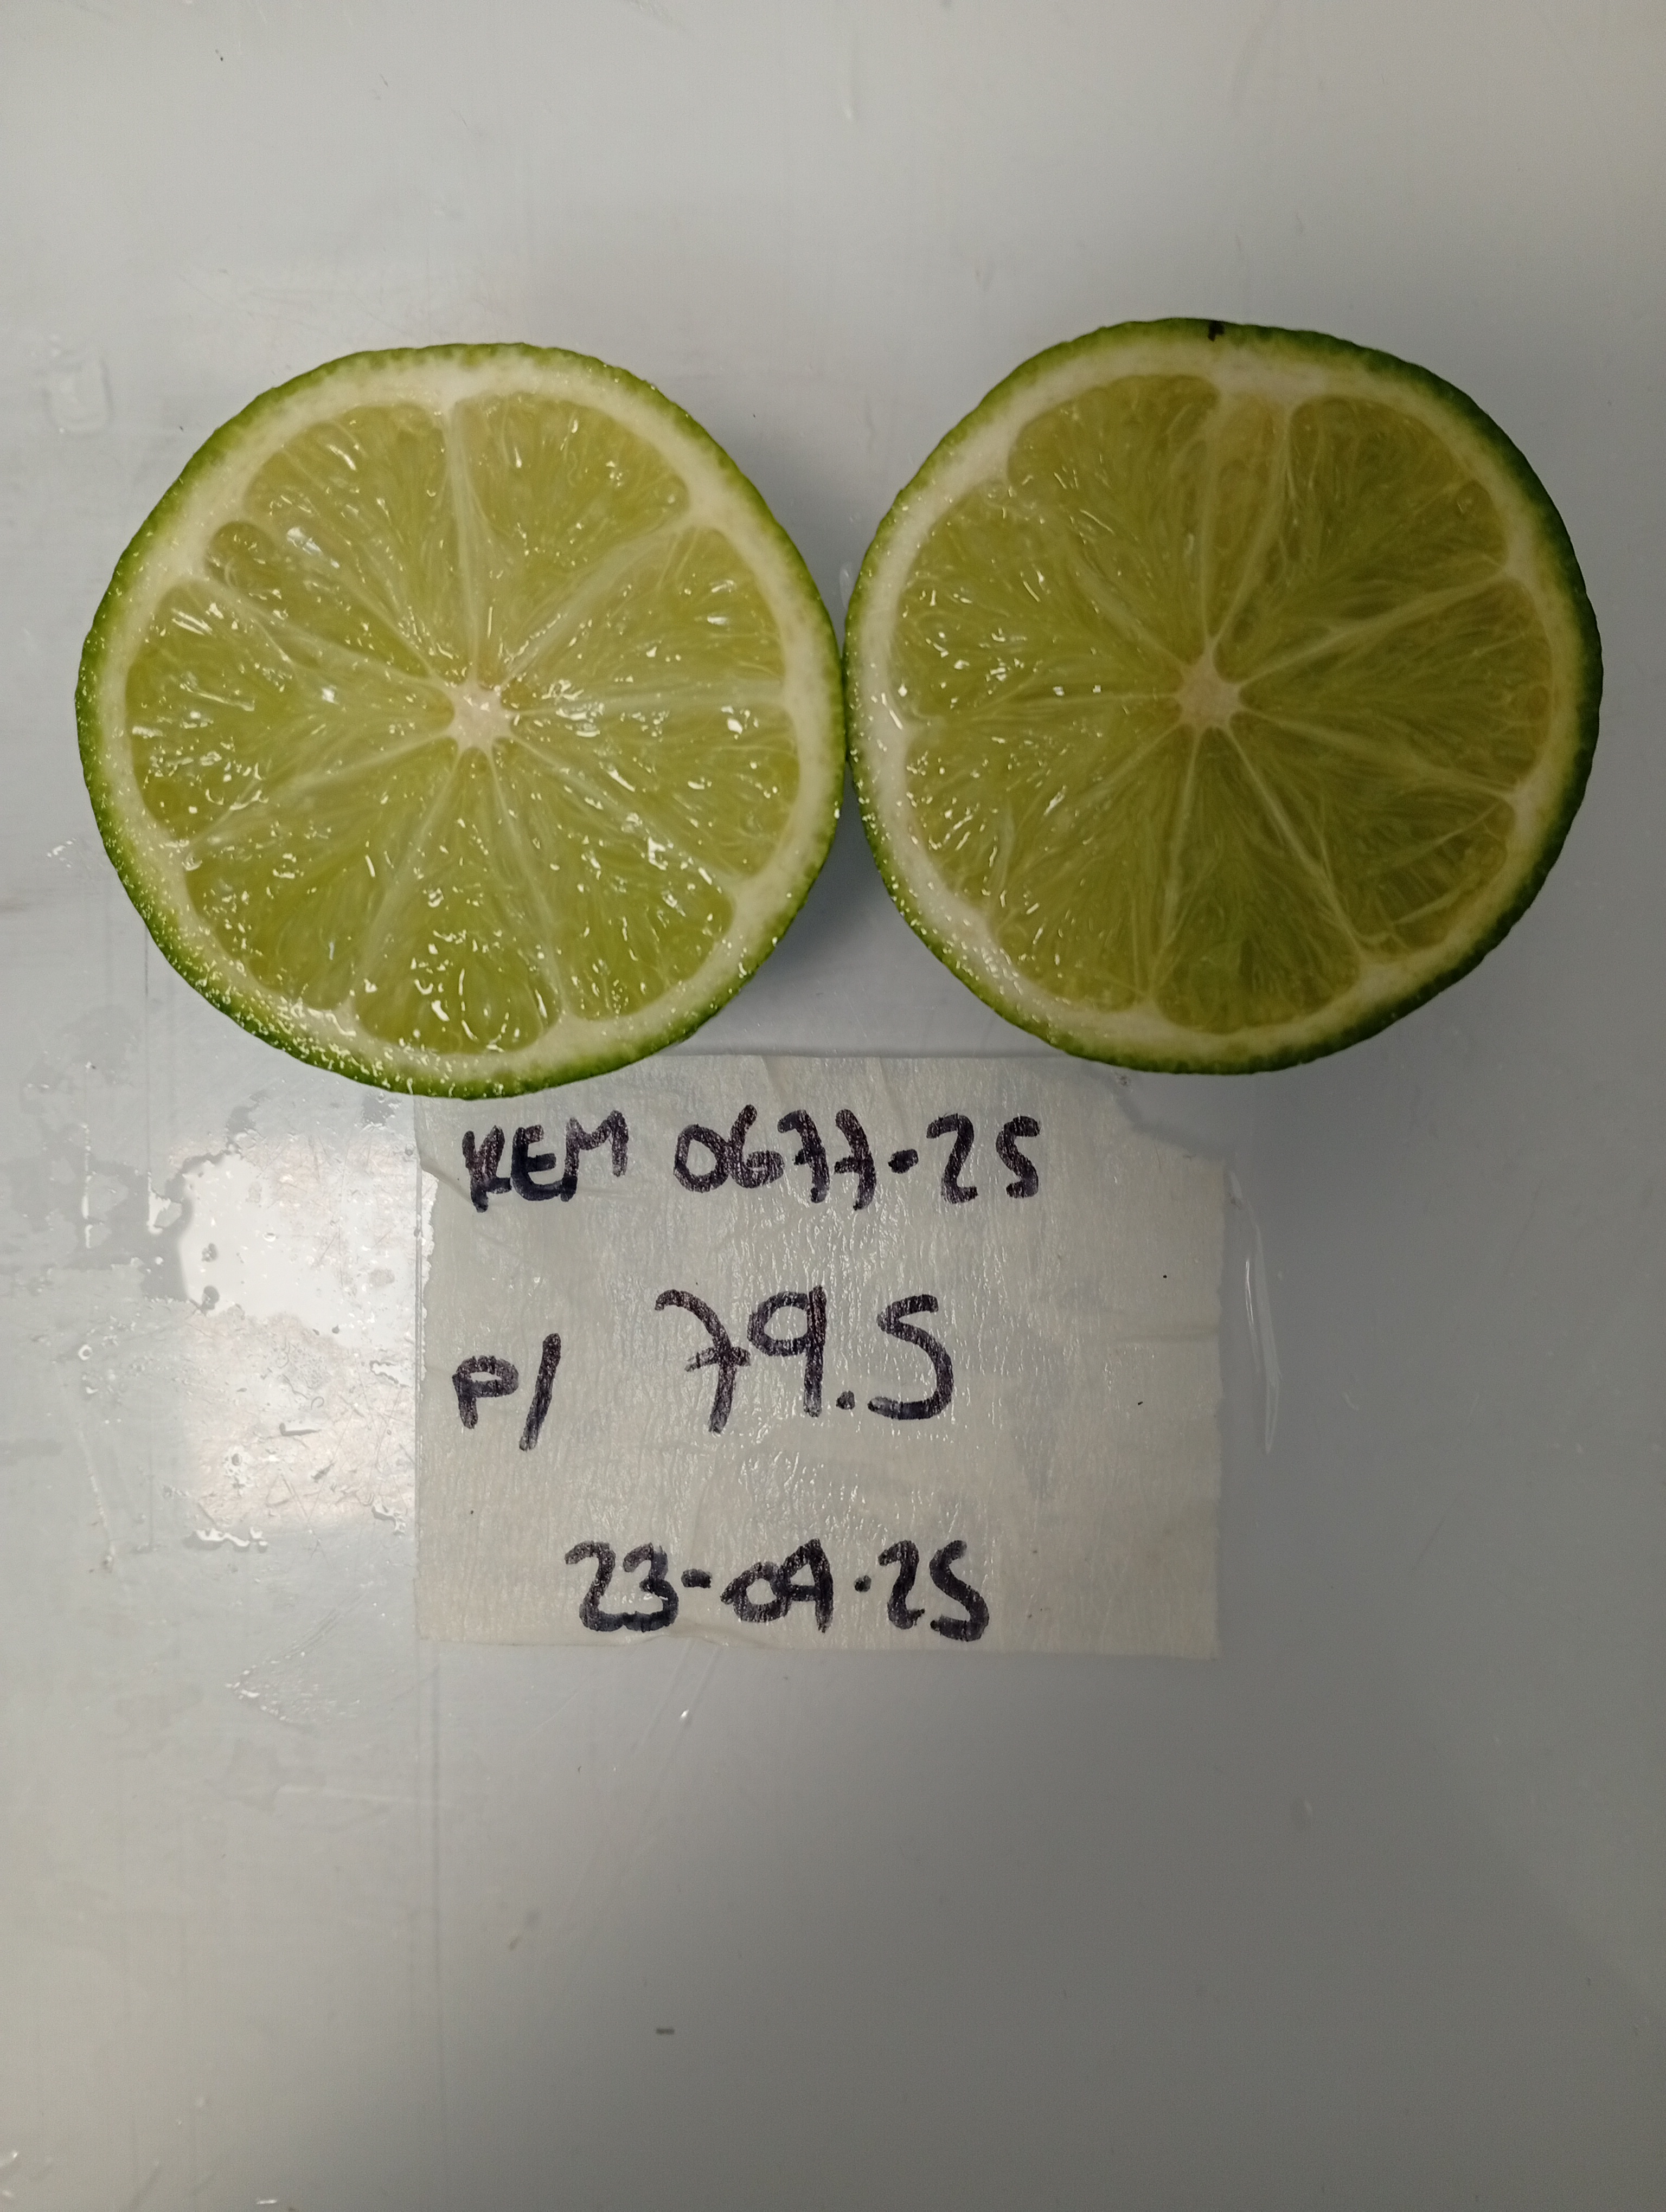 REM 0677-25
P/ 79.5
23-04-25